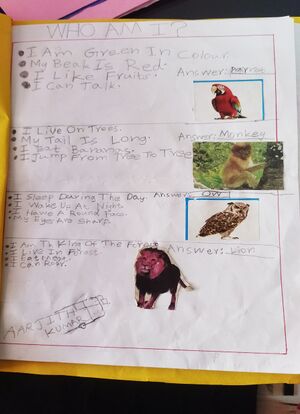 WHO AM I?
I Am Green In Colour.
My Beak Is Red.
I Like Fruits.
I Can Talk.
Answer: Parrot
I Live On Trees.
My Tail Is Long.
I Eat Bananas.
I Jump From Tree To Tree
Answer: Monkey
I Sleep During The Day.
I Wake Up At Night.
I Have A Round Face.
My Eyes Are Sharp.
Answer: Owl
I Am Th King Of The Forest
I Live In Forest
I Can Roar.
Answer: Lion
AARJITH
KUMAR